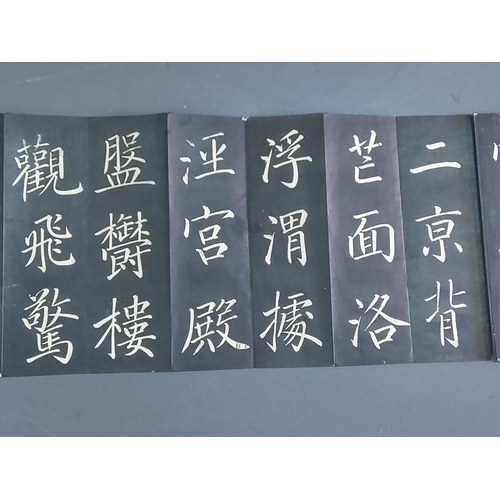 二京背
芒面洛
浮渭據
涇宮殿
盤鬱樓
觀飛驚